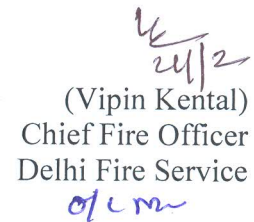 24/2
(Vipin Kental)
Chief Fire Officer
Delhi Fire Service